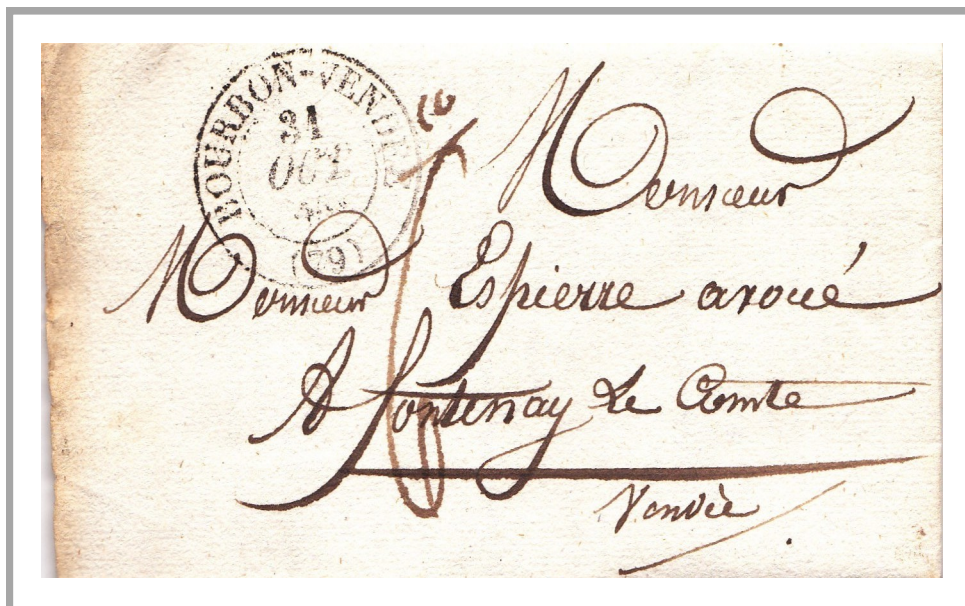 BOURBON-VENDÉE
31
OCT
(79)
Monsieur
Monsieur Espierre avoué
A fontenay Le Comte
Vendée